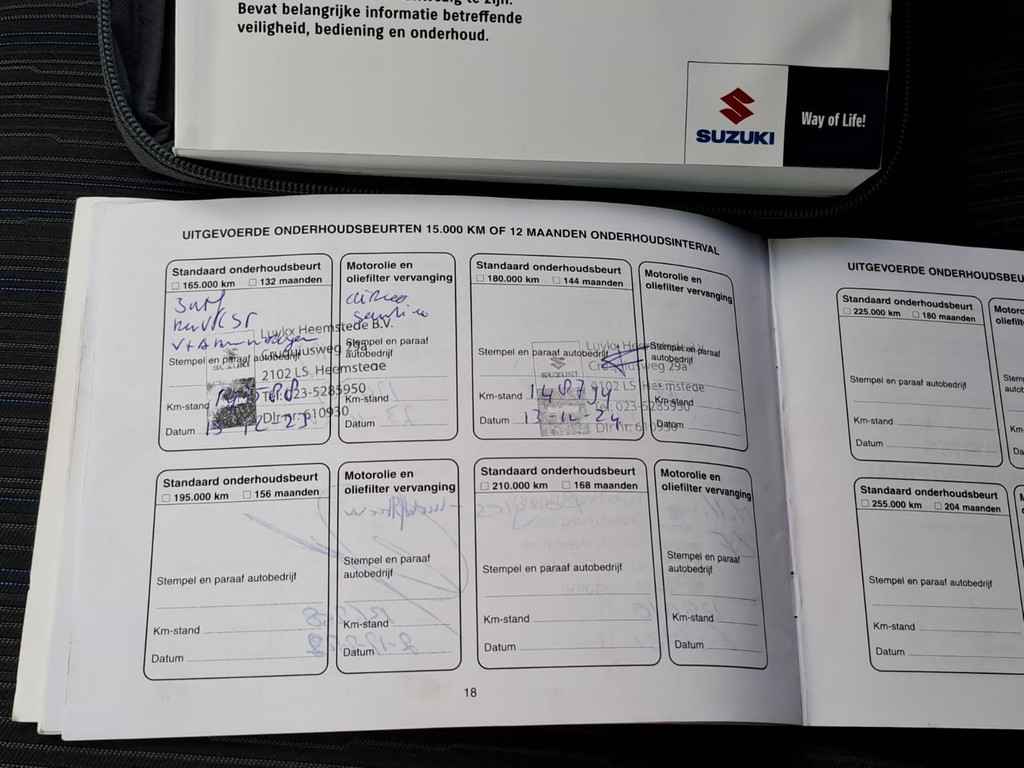 Bevat belangrijke informatie betreffende
veiligheid, bediening en onderhoud.
SUZUKI
Way of Life!
UITGEVOERDE ONDERHOUDSBEURTEN 15.000 KM OF 12 MAANDEN ONDERHOUDSINTERVAL
Standaard onderhoudsbeurt
165.000 km 132 maanden
Stempel en paraaf autobedrijf
Km-stand
Datum 13-12-23
Motorolie en
oliefilter vervanging
Stempel en paraaf
autobedrijf
Km-stand
Datum
Luykx Heemstede B.V.
Cruquiusweg 29a
2102 LS Heemstede
Tel. 023-5285950
Dlr.nr. 610930
Standaard onderhoudsbeurt
180.000 km 144 maanden
Stempel en paraaf autobedrijf
Km-stand 148794
Datum 13-12-24
Motorolie en
oliefilter vervanging
Stempel en paraaf
autobedrijf
Km-stand
Datum
SUZUKI
Luykx Heemstede
Cruquiusweg 29a
2102 LS Heemstede
Tel. 023-5285950
Dlr.nr. 610930
Standaard onderhoudsbeurt
195.000 km 156 maanden
Stempel en paraaf autobedrijf
Km-stand
Datum
Motorolie en
oliefilter vervanging
Stempel en paraaf
autobedrijf
Km-stand
Datum
Standaard onderhoudsbeurt
210.000 km 168 maanden
Stempel en paraaf autobedrijf
Km-stand
Datum
Motorolie en
oliefilter vervanging
Stempel en paraaf
autobedrijf
Km-stand
Datum
18
UITGEVOERDE ONDERHOUDSBEU
Standaard onderhoudsbeurt
225.000 km 180 maanden
Stempel en paraaf autobedrijf
Km-stand
Datum
Standaard onderhoudsbeurt
255.000 km 204 maanden
Stempel en paraaf autobedrijf
Km-stand
Datum